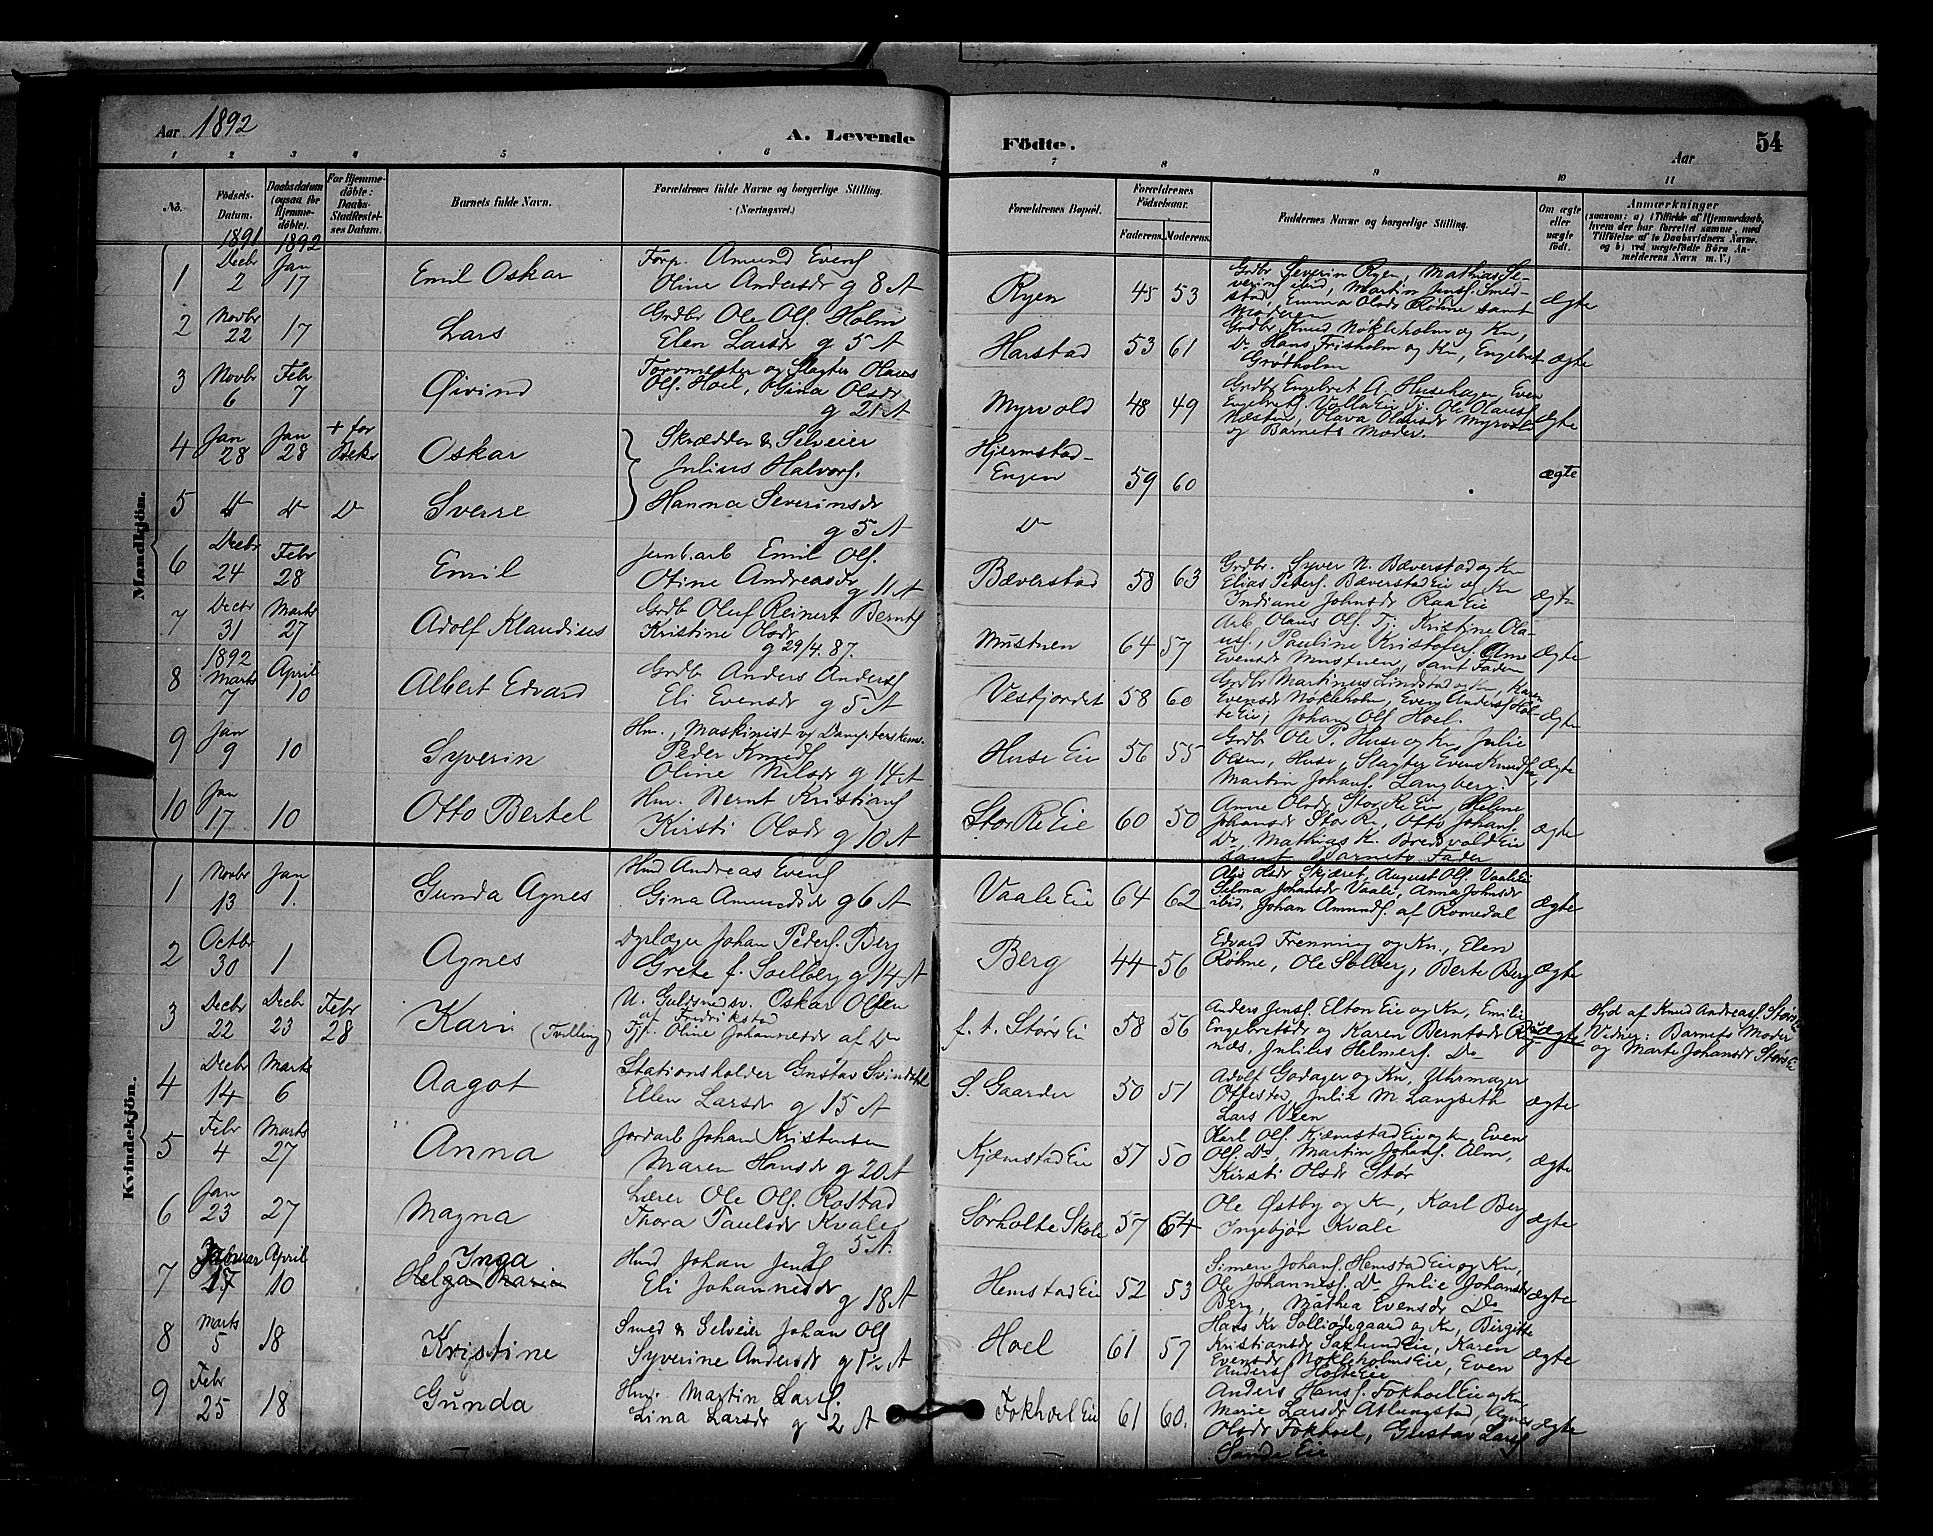 Aar 1892
A. Levende
Födte.
Aar
54
1 2 3 4 5 6 7 8 9 10 11
No.
Födsels-Datum.
Daabsdatum (ogsaa for Hjemmedöbte).
For Hjemmedöbte: Daabs-Stadfæstelses Datum.
Barnets fulde Navn.
Forældrenes fulde Navne og borgerlige Stilling. (Næringsvei.)
Forældrenes Bopæl.
Forældrenes Födselsaar.
Faderens. Moderens.
Faddernes Navne og borgerlige Stilling.
Om ægte eller uægte födt.
Anmærkninger
(saasom: a) i Tilfælde af Hjemmedaab, hvem der har forrettet samme, med Tilföielse af to Daabsvidners Navne, og b) ved uægtefödte Börn Anmelderens Navn m. V.)
Mandkjön.
1891 1892
1 Decbr 2 Jan 17 Emil Oskar
Forp. Amund Evens.
Oline Andersdr g 8 A
Ryen 45 53
Grdbr Severin Ryen, Mathias Se-
verins. ibid, Martin Jens. Smed-
stad, Emma Olsdr Röhne samt
Moderen
ægte
2 Novbr 22 17 Lars
Grdbr Ole Ols. Holm
Elen Larsdr g 5 A
Harstad 53 61
Grdbr Knud Nökleholm og Kn,
Do Hans Frisholm og Kn, Engebret
Grötholm
ægte
3 Novbr 6 Febr 7 Øivind
Torvmester og Slagter Hans
Ols. Hoel, Gina Olsdr
g 21 A
Myrvold 48 49
Grdbr Engebret A. Husehagen, Even
Engebrets. Volla Eie Tj. Ole Olaves.
Næsten, Olava Olausdr Myrvold
og Barnets Moder.
ægte
4 Jan 28 Jan 28 + før Bek Oskar
Skrædder & Selveier
Julius Halvors.
Hjermstad-
Engen 59 60
ægte
5 Do Do Do Sverre
Hanna Severinsdr
g 5 A
Do
6 Decbr 24 Febr 28 Emil
Jernb.arb Emil Ols.
Otine Andreasdr g 11 A
Bæverstad 58 63
Grdbr. Syver N. Bæverstad og Kn
Elias Peders. Bæverstad Eie og Kn
Indiane Johnsdr Raa Eie
ægte
7 Decbr 31 Marts 27 Adolf Klaudius
Grdb Oluf Reinert Bernts.
Kristine Olsdr
g 29/4. 87.
Mustuen 64 57
Arb Olaus Ols. Tj. Kristine Ola-
us., Pauline Kristofers. Alm
Evensdr Mustuen, samt Fader
ægte
8 1892 Marts 7 April 10 Albert Edvard
Grdb Anders Anders.
Eli Evensdr g 5 A
Vestjordet 58 60
Grdbr Martinus Lindstad og Kn, Karen
Evensdr Nökleholm, Even Anders. Hol-
te Eie, Johan Ols. Hoel.
ægte
9 Jan 9 10 Syverin
Hm., Maskinist v/ Dampterskev.
Peder Knuds.
Oline Nilsdr g 14 A
Huse Eie 56 55
Grdb Ole P. Huse og Kn Julie
Olsen, Huse, Slagter Even Knuds.,
Martin Johans. Langberg.
ægte
10 Jan 17 10 Otto Bertel
Hm. Bernt Kristians.
Kirsti Olsdr g 10 A
Stor Re Eie 60 50
Anne Olsdr Stor Re Eie, Helene
Johansdr Stor Re, Otto Johans.
Do, Mathias K. Bredsvold Eie
samt Barnets Fader
ægte
Kvindekjön.
1 Novbr 13 Jan 1. Gunda Agnes
Hmd Andreas Evens.
Gina Amundsdr g 6 A
Vaale Eie 64 62
Skjæret, August Ols. Vaale Eie
Selma Johansdr Vaale, Anna Johnsdr
ibid, Johan Amunds. af Romedal
ægte
2 Octbr 30 1 Agnes
Dyrlæge Johan Peders. Berg
Grete f. Solberg g 14 A
Berg 44 56
Edvard Frenning og Kn., Elen
Röhne, Ole Solberg, Berte Berg
ægte
3 Decbr 22 Decbr 23 Febr 28 Kari (Tvilling)
U. Guldsmedsv. Oskar Olsen
af Fredrikstad
Tjp. Oline Johannesdr af Do
f. t. Störs Ei 58 56
Anders Jens. Elton Eie og Kn, Emilie
Engebretsdr og Karen Berntsdr Rög-
næs, Julius Helmers. Do
uægte
Hjd af Knud Andreas. Störs Eie
Vidner: Barnets Moder
og Marte Johansdr Störs Ei
4 Decbr 14 Marts 6 Aagot
Stationsholder Gustav Svindahl
Ellen Larsdr g 15 A
S. Gaarder 50 51
Adolf Godager og Kn, Uhrmager
Ottestad, Julie M. Langseth
Lars Veen
ægte
5 Febr 4 Marts 27 Anna
Jordarb Johan Kristensen
Maren Hansdr g 20 A
Kjemstad Eie 57 50
Karl Ols. Kjæmstad Eie og Kn, Even
Ols. Do, Martin Johans. Alm,
Kirsti Olsdr Stör
ægte
6 Jan 23 27 Magna
Lærer Ole Ols. Rostad
Thora Paulsdr Kvale
g 5 A.
Sörholte Skole 57 64
Ole Østby og Kn, Karl Berg
Ingebjør Kvale
ægte
7 Januar 17 April 10 Inga
Helga Marie
Hmd Johan Jens.
Eli Johannesdr
g 18 A
Hemstad Eie 52 53
Simen Johans. Hemstad Eie og Kn,
Ole Johannes. Do Julie Johansdr
Berg, Mathea Evensdr Do
ægte
8 Marts 5 18 Kristine
Smed & Selveier Johan Ols.
Syverine Andersdr g 1½ A
Hoel 61 57
Hans Kr Solliödegaard og Kn, Birgitte
Kristiansdr Saxlund Eie, Karen
Evensdr Nökleholms Eie, Even
Anders. Holte Eie
ægte
9 Febr 25 18 Gunda
Hm. Martin Lars.
Lina Larsdr g 2 A
Fokhoel Eie 61 60.
Anders Hans. Fokhoel Eie og Kn
Marie Larsdr Atlungstad, Agnes
Olsdr Fokhoel, Gustav Lars.
Sande Eie
ægte